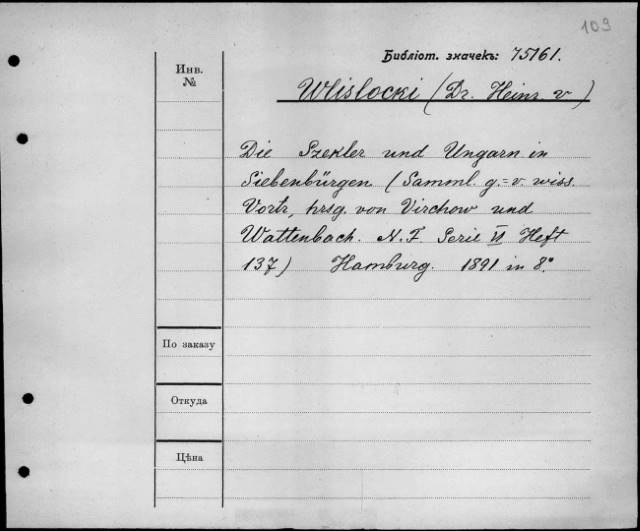 103
Библіот. значекъ: 75161.
Инв.
№
Wlislocki (Dr. Heinr. v)
Die Szekler und Ungarn in
Siebenbürgen (Samml. g.=v. wiss.
Vortr, hrsg. von Virchow und
Wattenbach. N.F. Serie VI Heft
137) Hamburg. 1891 in 8°
По заказу
Откуда
Цѣна